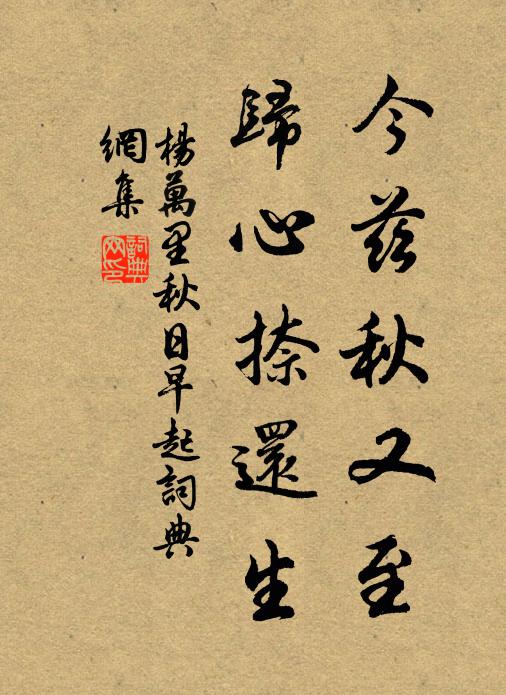 今茲秋又至
歸心捺還生
楊萬里秋日早起詞典
網集
詞典
网印